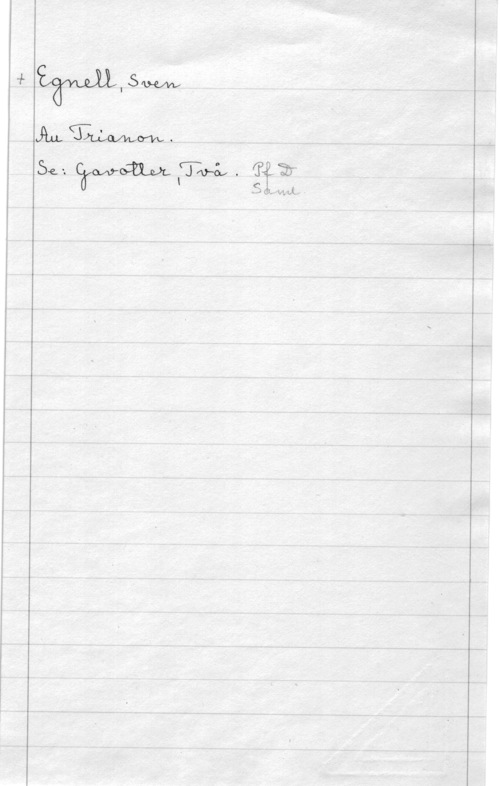 + Egnell, Sven
Au Trianon.
Se: Gavotter, Två. Pf D
Saml